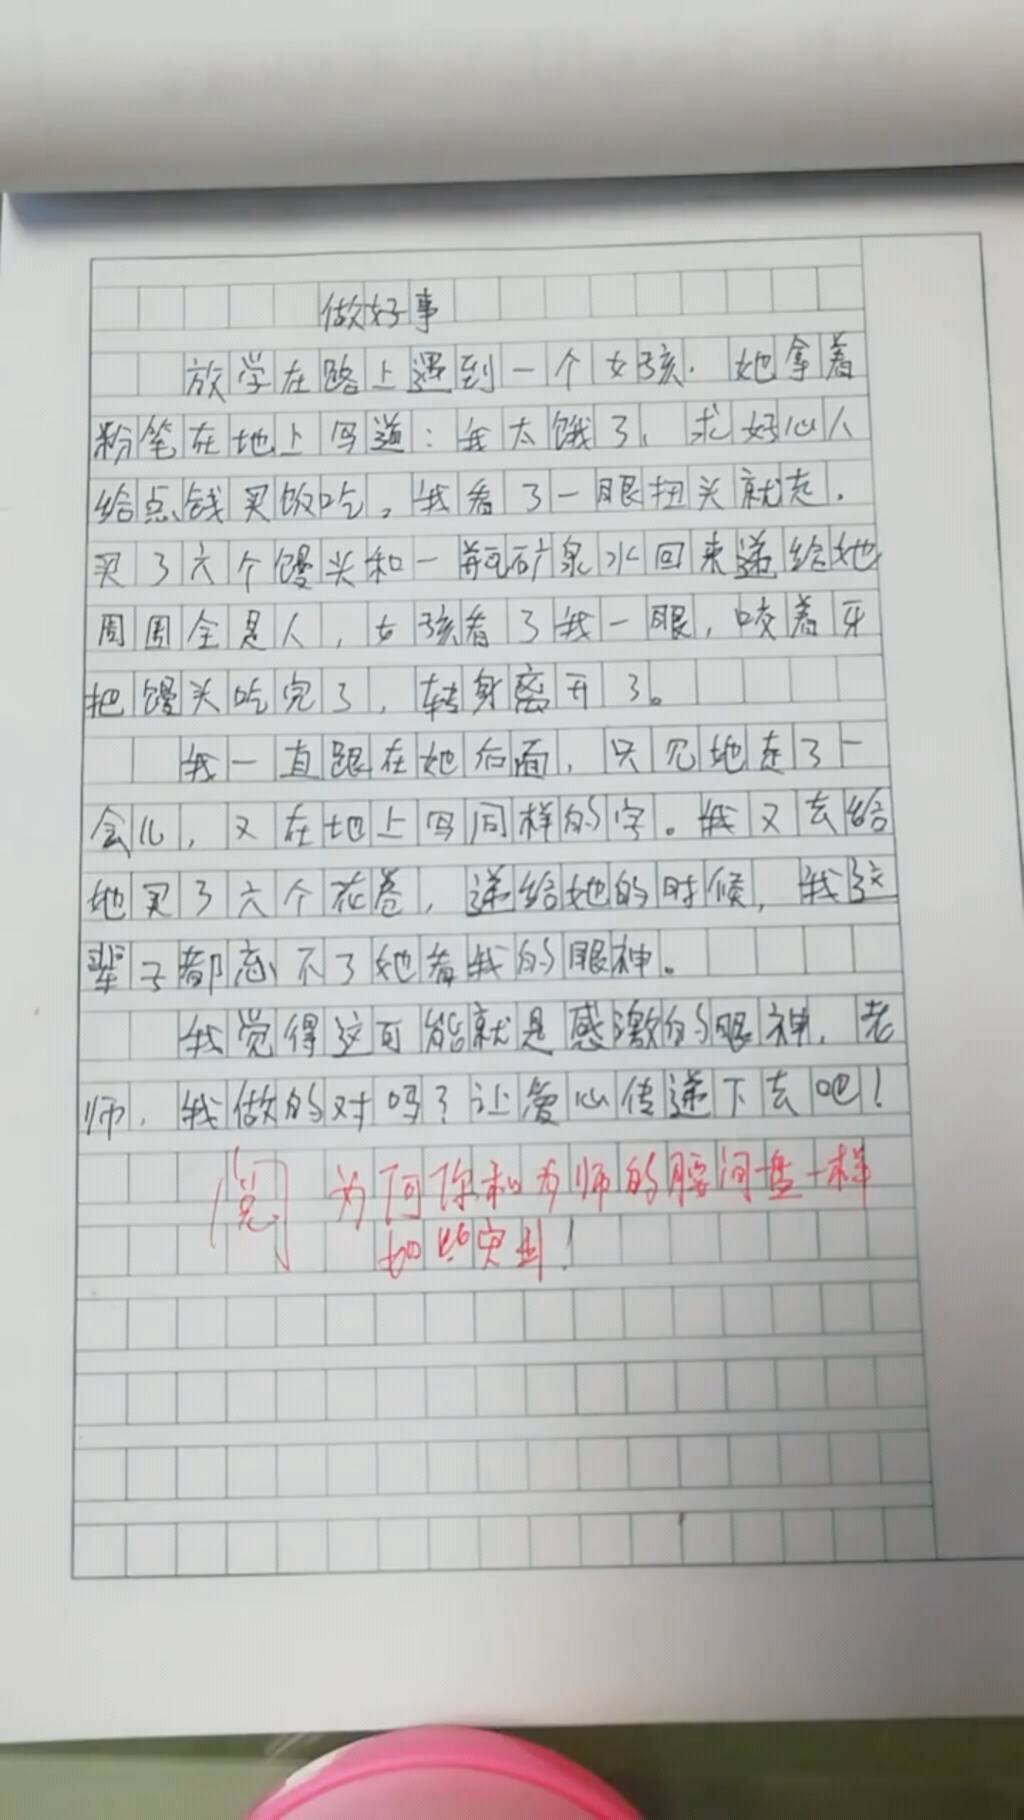 做好事
放学在路上遇到一个女孩.她拿着
粉笔在地上写道:我太饿了,求好心人
给点钱买饭吃。我看了一眼扭头就走.
买了六个馒头和一瓶矿泉水回来递给她
周围全是人,女孩看了我一眼,咬着牙
把馒头吃完了,转身离开了。
我一直跟在她后面,只见她走了一
会儿,又在地上写同样的字。我又去给
她买了六个花卷,递给她的时候,我这
辈子都忘不了她看我的眼神。
我觉得这可能就是感激的眼神,老
师,我做的对吗?让爱心传递下去吧!
阅 为何你和为师的腰间盘一样
如此突出!